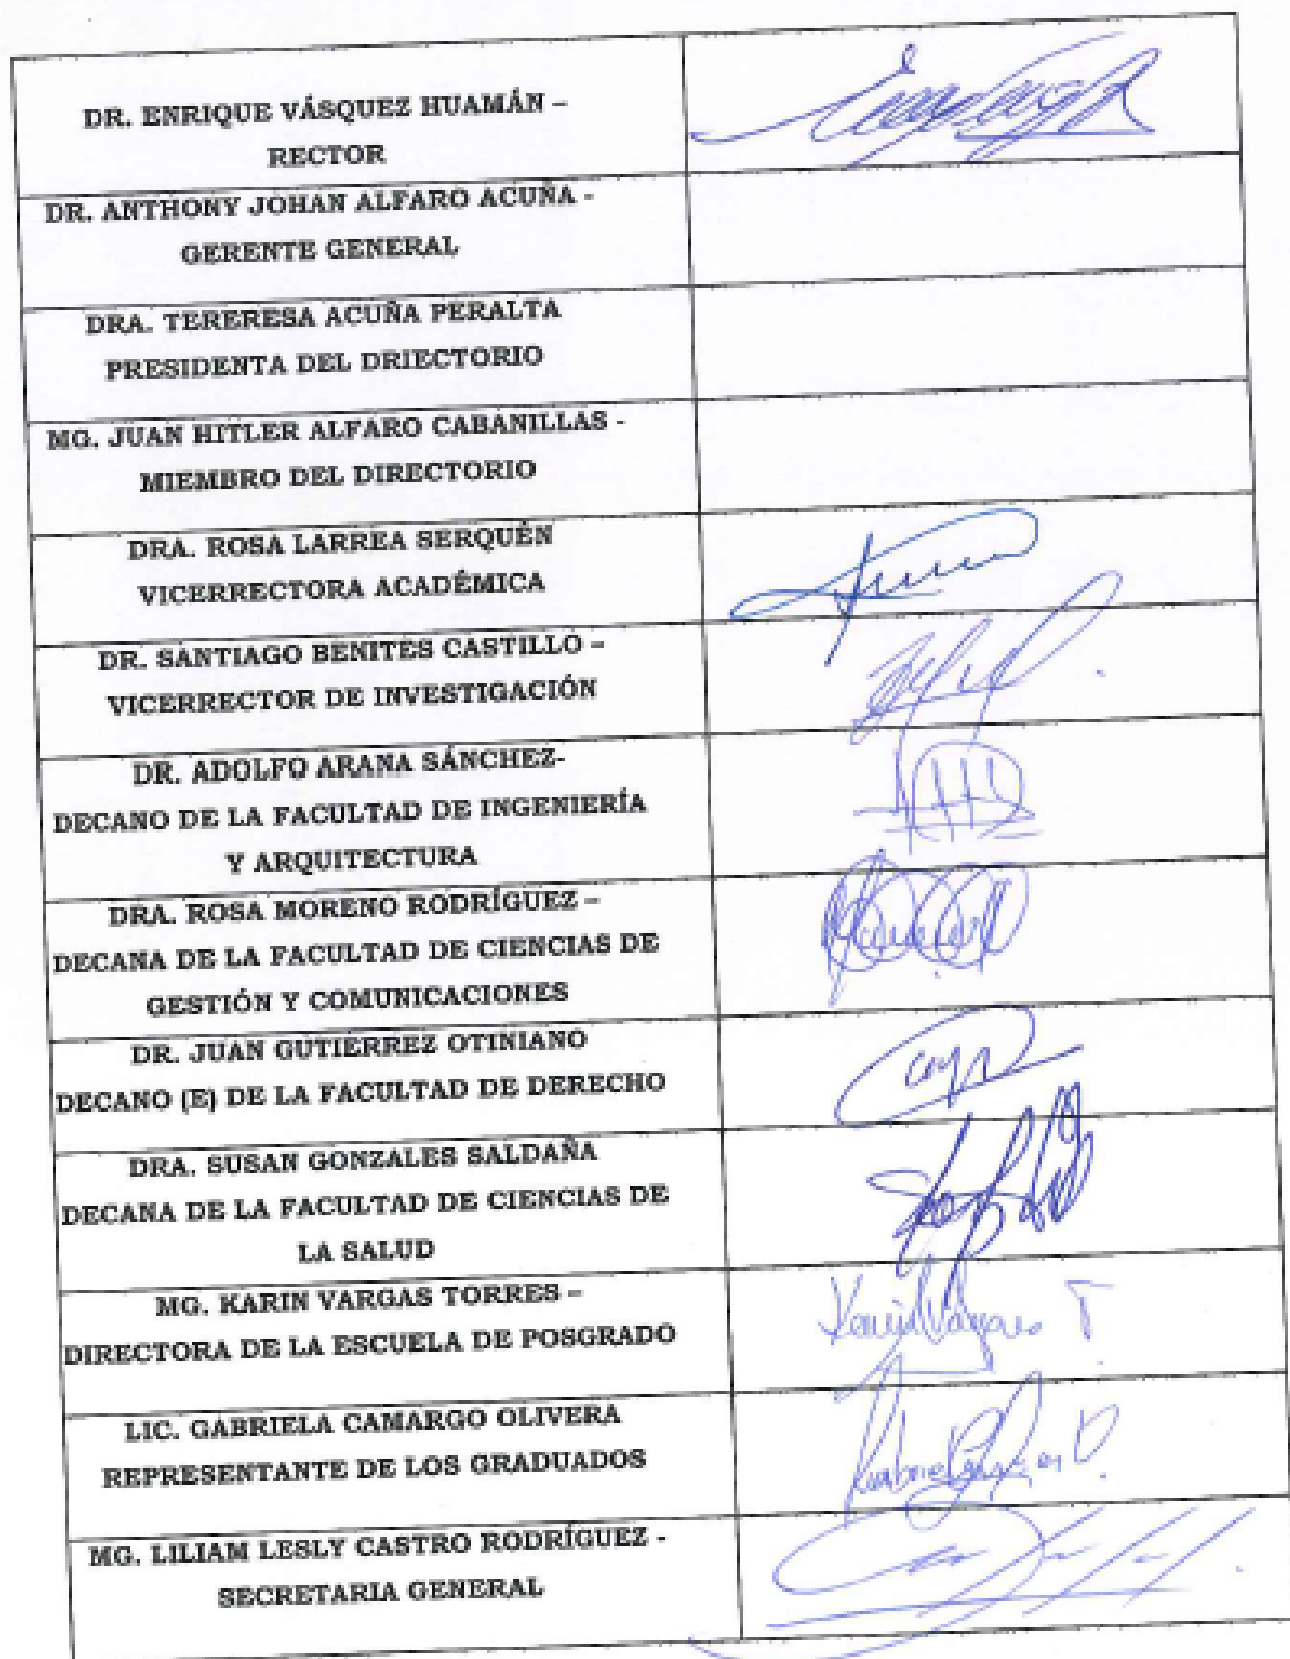 DR. ENRIQUE VÁSQUEZ HUAMÁN –
RECTOR
DR. ANTHONY JOHAN ALFARO ACUÑA -
GERENTE GENERAL
DRA. TERERESA ACUÑA PERALTA
PRESIDENTA DEL DRIECTORIO
MG. JUAN HITLER ALFARO CABANILLAS -
MIEMBRO DEL DIRECTORIO
DRA. ROSA LARREA SERQUÉN
VICERRECTORA ACADÉMICA
DR. SANTIAGO BENITES CASTILLO –
VICERRECTOR DE INVESTIGACIÓN
DR. ADOLFO ARANA SÁNCHEZ-
DECANO DE LA FACULTAD DE INGENIERÍA
Y ARQUITECTURA
DRA. ROSA MORENO RODRÍGUEZ –
DECANA DE LA FACULTAD DE CIENCIAS DE
GESTIÓN Y COMUNICACIONES
DR. JUAN GUTIÉRREZ OTINIANO
DECANO (E) DE LA FACULTAD DE DERECHO
DRA. SUSAN GONZALES SALDAÑA
DECANA DE LA FACULTAD DE CIENCIAS DE
LA SALUD
MG. KARIN VARGAS TORRES –
DIRECTORA DE LA ESCUELA DE POSGRADO
Karin Vargas T
LIC. GABRIELA CAMARGO OLIVERA
REPRESENTANTE DE LOS GRADUADOS
MG. LILIAM LESLY CASTRO RODRÍGUEZ -
SECRETARIA GENERAL